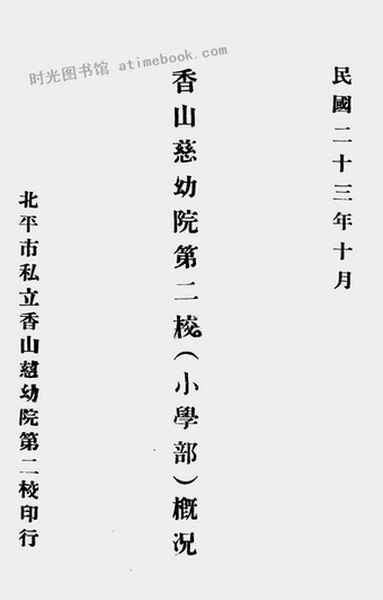 时光图书馆 atimebook.com
民國二十三年十月
香山慈幼院第二校(小學部)概况
北平市私立香山慈幼院第二校印行